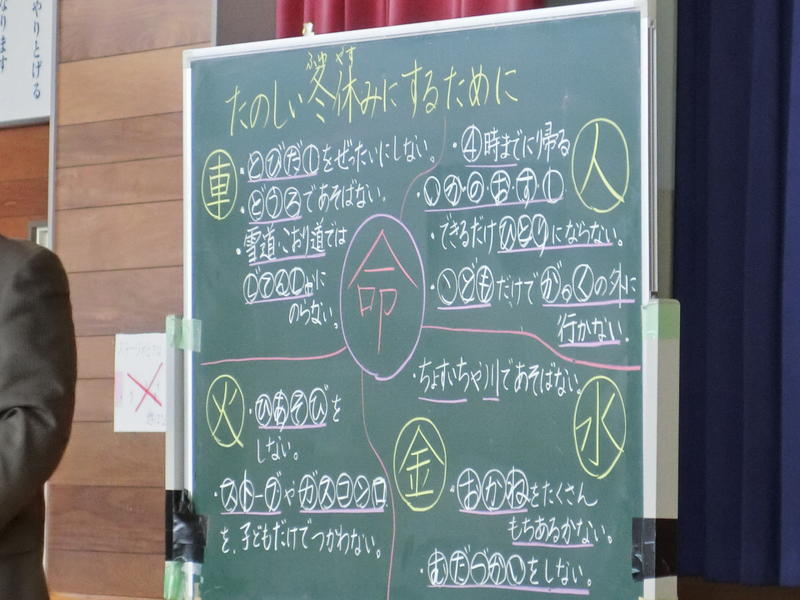 やりとげる
なります
ふゆ やす
たのしい冬休みにするために
車
・とびだしをぜったいにしない。
・どうろであそばない。
・雪道、こおり道では
じてんしゃに
のらない。
人
・④時までに帰る
・いかのおすし
・できるだけひとりにならない。
・こどもだけでがっくの外に
行かない。
命
火
・ひあそびを
しない。
・ストーブやガスコンロ
を、子どもだけでつかわない。
水
・ちょすいちや川であそばない。
金
・おかねをたくさん
もちあるかない。
・むだづかいをしない。